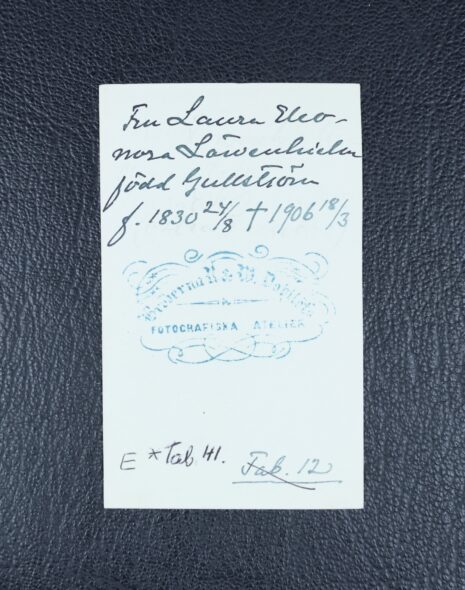 Fru Laura Eleo-
nora Löwenhielm
född Gullström
f. 1830 24/8 † 1906 18/3
FOTOGRAFISKA ATELIER
E * Tab 41.
Tab. 12